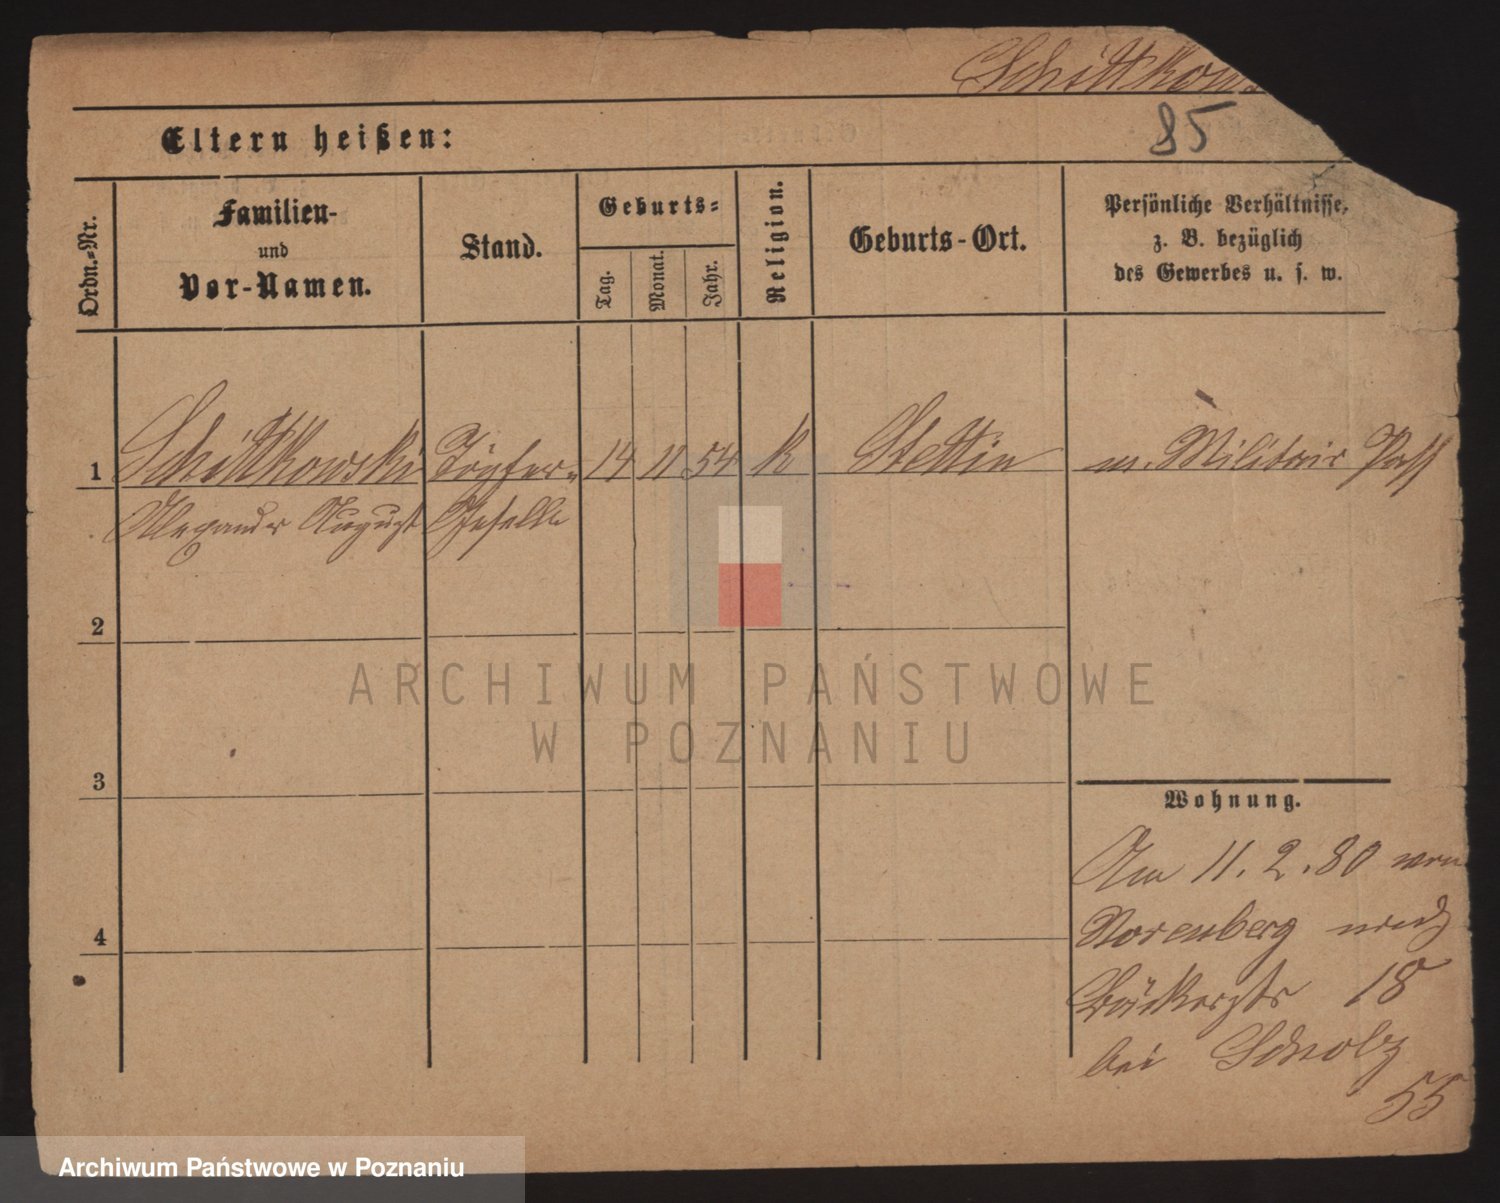 Schittkows
85
Eltern heißen:
Ordn.-Nr.
Familien-
und
Vor-Namen.
Stand.
Geburts-
Tag.
Monat.
Jahr.
Religion.
Geburts-Ort.
Persönliche Verhältnisse,
z. B. bezüglich
des Gewerbes u. s. w.
1 Schittkowski Töpfer- 14 11 54 K Stettin m. Militair Paß
Alexander August Geselle
2
3
4
Wohnung.
Am 11. 2. 80 von
Norenberg nach
Bäckerstr 18
bei Scholz
55
ARCHIWUM PAŃSTWOWE
W POZNANIU
Archiwum Państwowe w Poznaniu